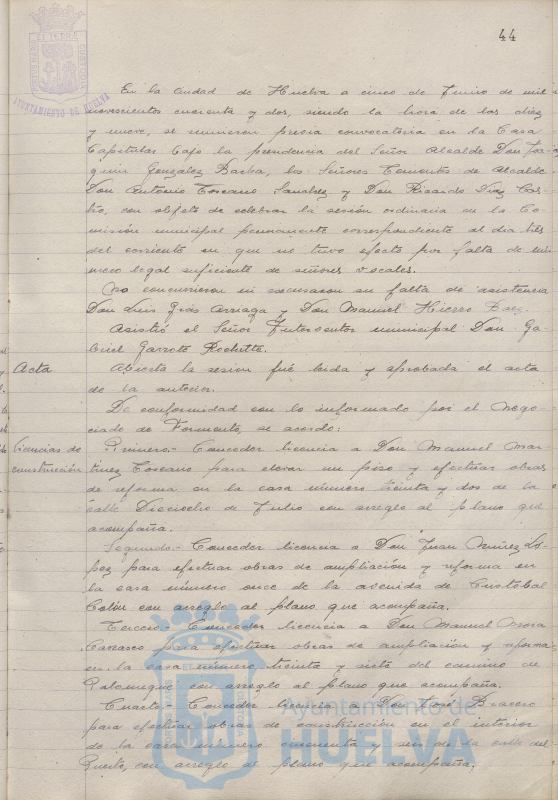 44
AYUNTAMIENTO DE HUELVA
En la ciudad de Huelva a cinco de Junio de mil
novecientos cuarenta y dos, siendo la hora de las diez
y nueve, se reunieron previa convocatoria en la Casa
Capitular bajo la presidencia del Señor Alcalde Don Joa-
quin Gonzalez Barba, los Señores Tenientes de Alcalde
Don Antonio Toscano Sanchez y Don Ricardo Diaz Cas-
tro, con objeto de celebrar la sesión ordinaria de la Co-
misión municipal permanente correspondiente al dia tres
del corriente en que no tuvo efecto por falta de nú-
mero legal suficiente de señores vocales.
No concurrieron ni excusaron su falta de asistencia
Don Luis Gras Arriaga y Don Manuel Hierro Baez.
Asistió el Señor Interventor municipal Don Ga-
briel Garrote Rochette.
Acta
Abierta la sesion fué leida y aprobada el acta
de la anterior.
De conformidad con lo informado por el Nego-
ciado de Fomento, se acordo:
Licencias de
construcción
Primero.- Conceder licencia a Don Manuel Mar-
tinez Toscano para elevar un piso y efectuar obras
de reforma en la casa número treinta y dos de la
calle Dieciocho de Julio con arreglo al plano que
acompaña.
Segundo.- Conceder licencia a Don Juan Muñez Ló-
pez para efectuar obras de ampliación y reforma en
la casa número once de la avenida de Cristobal
Colón con arreglo al plano que acompaña.
Tercero.- Conceder licencia a Don Manuel Mora
Carrasco para efectuar obras de ampliación y reforma
en la casa número treinta y siete del camino de
Palomeque con arreglo al plano que acompaña.
Cuarto.- Conceder licencia a Don José Bracero
para efectuar obras de construcción en el interior
de la casa número cuarenta y seis de la calle del
Puerto, con arreglo al plano que acompaña.
Ayuntamiento de
HUELVA